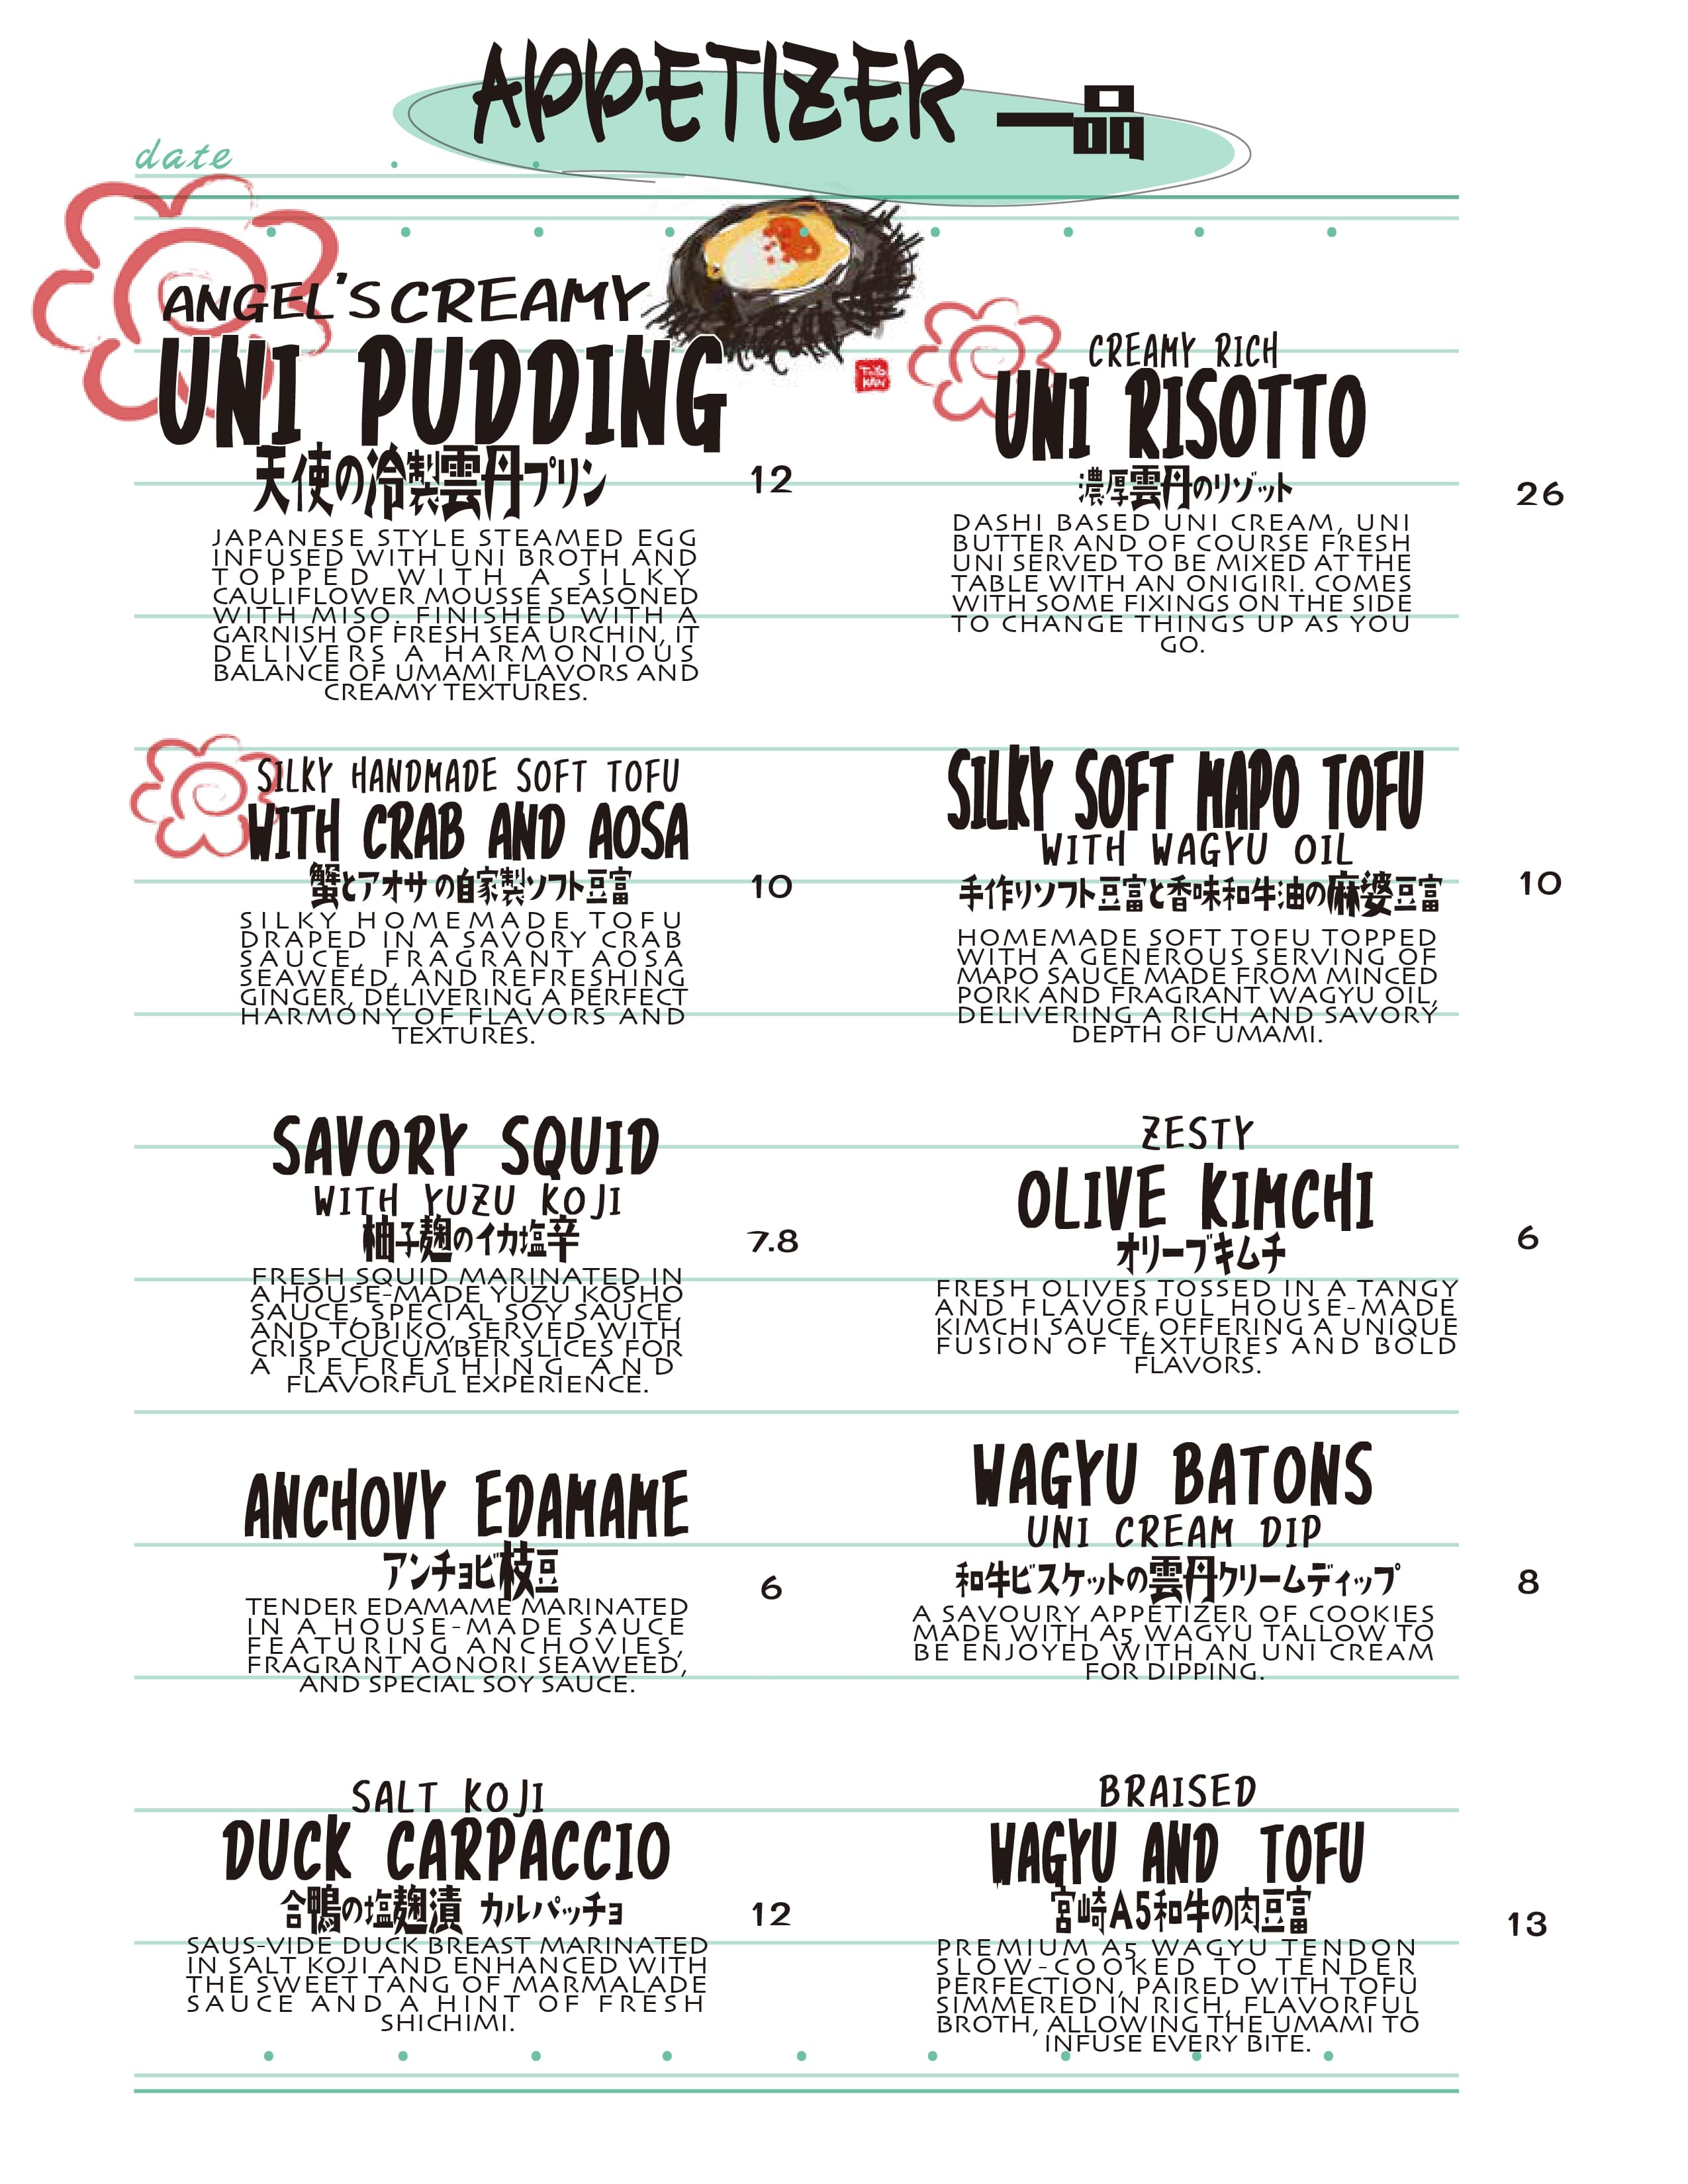 APPETIZER 一品
date
ANGEL'S CREAMY
UNI PUDDING
天使の冷製雲丹プリン
12
JAPANESE STYLE STEAMED EGG
INFUSED WITH UNI BROTH AND
TOPPED WITH A SILKY
CAULIFLOWER MOUSSE SEASONED
WITH MISO. FINISHED WITH A
GARNISH OF FRESH SEA URCHIN, IT
DELIVERS A HARMONIOUS
BALANCE OF UMAMI FLAVORS AND
CREAMY TEXTURES.
CREAMY RICH
UNI RISOTTO
濃厚雲丹のリゾット
26
DASHI BASED UNI CREAM, UNI
BUTTER AND OF COURSE FRESH
UNI SERVED TO BE MIXED AT THE
TABLE WITH AN ONIGIRI. COMES
WITH SOME FIXINGS ON THE SIDE
TO CHANGE THINGS UP AS YOU
GO.
SILKY HANDMADE SOFT TOFU
WITH CRAB AND AOSA
蟹とアオサの自家製ソフト豆富
10
SILKY HOMEMADE TOFU
DRAPED IN A SAVORY CRAB
SAUCE, FRAGRANT AOSA
SEAWEED, AND REFRESHING
GINGER, DELIVERING A PERFECT
HARMONY OF FLAVORS AND
TEXTURES.
SILKY SOFT MAPO TOFU
WITH WAGYU OIL
手作りソフト豆富と香味和牛油の麻婆豆富
10
HOMEMADE SOFT TOFU TOPPED
WITH A GENEROUS SERVING OF
MAPO SAUCE MADE FROM MINCED
PORK AND FRAGRANT WAGYU OIL,
DELIVERING A RICH AND SAVORY
DEPTH OF UMAMI.
SAVORY SQUID
WITH YUZU KOJI
柚子麹のイカ塩辛
7.8
FRESH SQUID MARINATED IN
A HOUSE-MADE YUZU KOSHO
SAUCE, SPECIAL SOY SAUCE,
AND TOBIKO, SERVED WITH
CRISP CUCUMBER SLICES FOR
A REFRESHING AND
FLAVORFUL EXPERIENCE.
ZESTY
OLIVE KIMCHI
オリーブキムチ
6
FRESH OLIVES TOSSED IN A TANGY
AND FLAVORFUL HOUSE-MADE
KIMCHI SAUCE, OFFERING A UNIQUE
FUSION OF TEXTURES AND BOLD
FLAVORS.
ANCHOVY EDAMAME
アンチョビ枝豆
6
TENDER EDAMAME MARINATED
IN A HOUSE-MADE SAUCE
FEATURING ANCHOVIES,
FRAGRANT AONORI SEAWEED,
AND SPECIAL SOY SAUCE.
WAGYU BATONS
UNI CREAM DIP
和牛ビスケットの雲丹クリームディップ
8
A SAVOURY APPETIZER OF COOKIES
MADE WITH A5 WAGYU TALLOW TO
BE ENJOYED WITH AN UNI CREAM
FOR DIPPING.
SALT KOJI
DUCK CARPACCIO
合鴨の塩麹漬 カルパッチョ
12
SAUS-VIDE DUCK BREAST MARINATED
IN SALT KOJI AND ENHANCED WITH
THE SWEET TANG OF MARMALADE
SAUCE AND A HINT OF FRESH
SHICHIMI.
BRAISED
WAGYU AND TOFU
宮崎A5和牛の肉豆富
13
PREMIUM A5 WAGYU TENDON
SLOW-COOKED TO TENDER
PERFECTION, PAIRED WITH TOFU
SIMMERED IN RICH, FLAVORFUL
BROTH, ALLOWING THE UMAMI TO
INFUSE EVERY BITE.